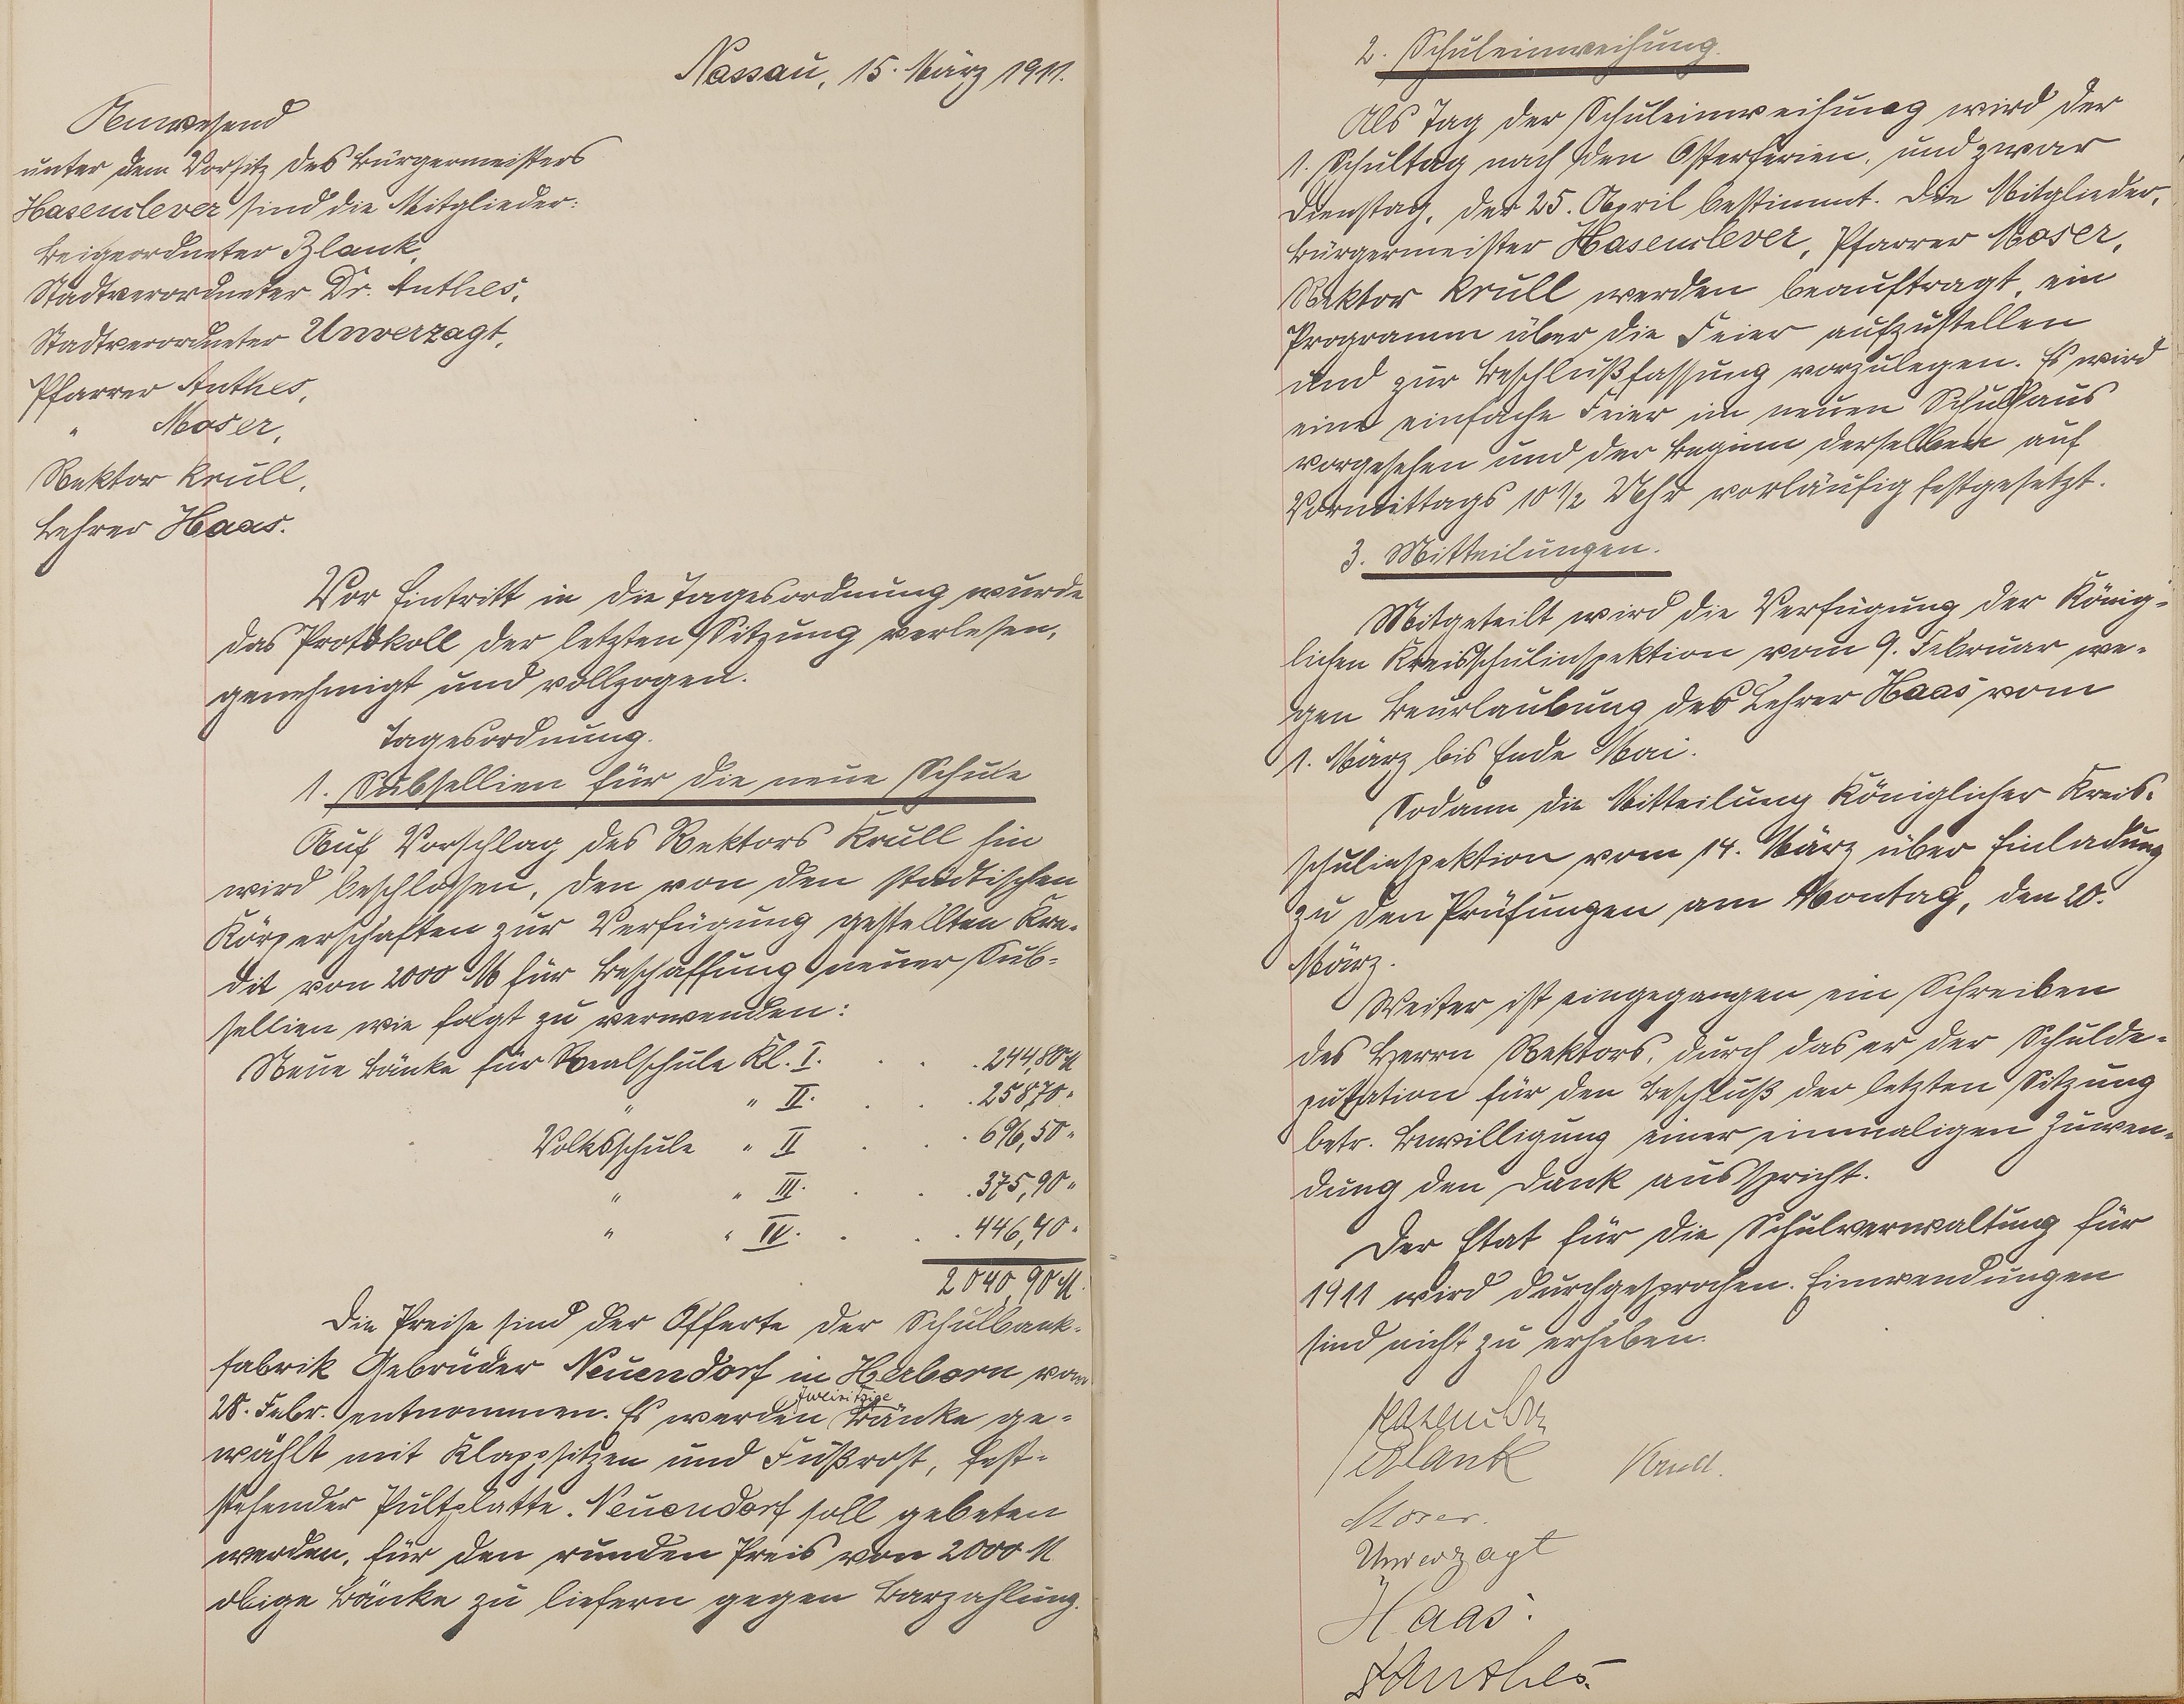 Nassau, 15. März 1911.
Anwesend
unter dem Vorsitz des Bürgermeisters
Hasenclever sind die Mitglieder:
Beigeordneter Blank,
Stadtverordneter Dr. Anthes,
Stadtverordneter Unverzagt,
Pfarrer Anthes,
" Moser,
Rektor Krull,
Lehrer Haas.
Vor Eintritt in die Tagesordnung wurde
das Protokoll der letzten Sitzung verlesen,
genehmigt und vollzogen.
Tagesordnung.
1. Subsellien für die neue Schule
Auf Vorschlag des Rektors Krull hin
wird beschlossen, den von den städtischen
Körperschaften zur Verfügung gestellten Kre-
dit von 2000 M für Beschaffung neuer Sub-
sellien wie folgt zu verwenden:
Neue Bänke für Realschule Kl. I. . . . 244,80 M
" " II. . . . 258,70 "
Volksschule " II . . . 696,50 "
" " III. . . . 375,90 "
" " IV. . . . 446,40 "
2040,90 M.
Die Preise sind der Offerte der Schulbank-
fabrik Gebrüder Neuendorf in Herborn vom
28. Febr. entnommen. Es werden zweisitzige Bänke ge-
wählt mit Klappsitzen und Fußrost, fest-
stehender Pultplatte. Neuendorf soll gebeten
werden, für den runden Preis von 2000 M
obige Bänke zu liefern gegen Barzahlung.
2. Schuleinweihung.
Als Tag der Schuleinweihung wird der
1. Schultag nach den Osterferien, und zwar
Dienstag, der 25. April bestimmt. Die Mitglieder,
Bürgermeister Hasenclever, Pfarrer Moser,
Rektor Krull werden beauftragt, ein
Programm über die Feier aufzustellen
und zur Beschlußfassung vorzulegen. Es wird
eine einfache Feier im neuen Schulhaus
vorgesehen und der Beginn derselben auf
Vormittags 10 1/2 Uhr vorläufig festgesetzt.
3. Mitteilungen.
Mitgeteilt wird die Verfügung der König-
lichen Kreisschulinspektion vom 9. Februar we-
gen Beurlaubung des Lehrer Haas vom
1. März bis Ende Mai.
Sodann die Mitteilung Königlicher Kreis-
schulinspektion vom 14. März über Einladung
zu den Prüfungen am Montag, den 20.
März.
Weiter ist eingegangen ein Schreiben
des Herrn Rektors, durch das er der Schulde-
putation für den Beschluß der letzten Sitzung
betr. Bewilligung einer einmaligen Zuwen-
dung den Dank ausspricht.
Der Etat für die Schulverwaltung für
1911 wird durchgesprochen. Einwendungen
sind nicht zu erheben.
Hasenclever
Blank Krull.
Moser.
Unverzagt
Haas.
Anthes.